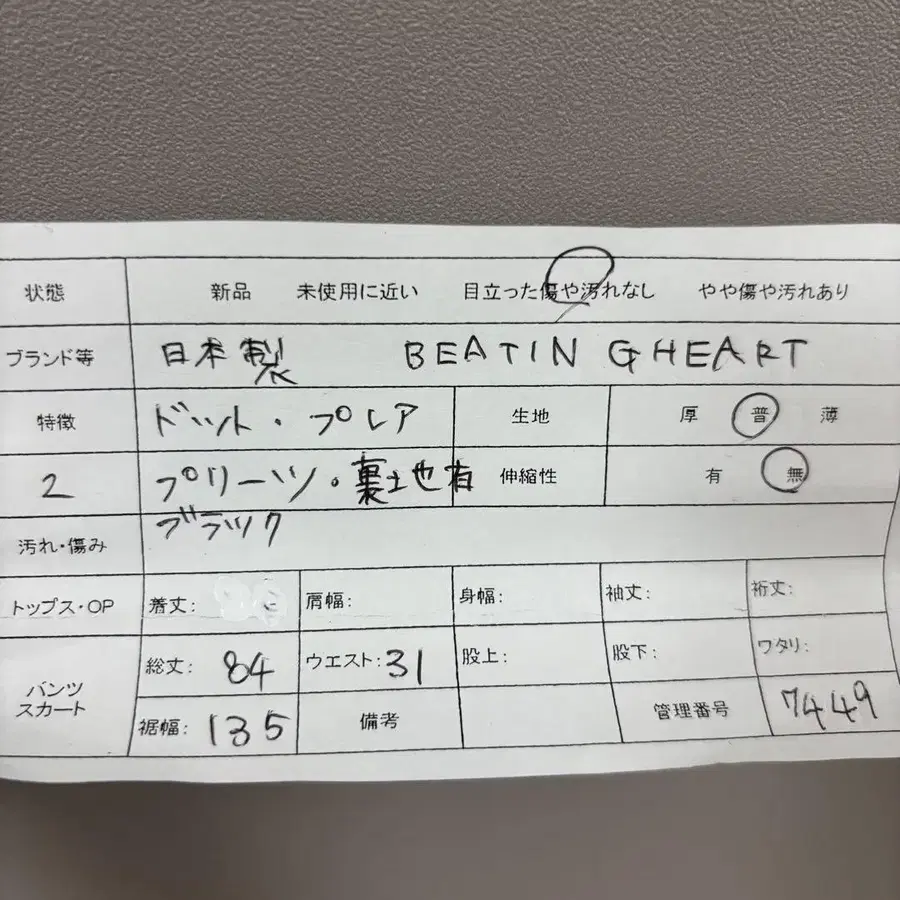 状態 新品 未使用に近い 目立った傷や汚れなし やや傷や汚れあり
ブランド等 日本製 BEATIN GHEART
特徴 ドット・フレア 生地 厚 普 薄
2 プリーツ・裏土也有 伸縮性 有 無
ブラック
汚れ・傷み
トップス・OP 着丈: 肩幅: 身幅: 袖丈: 裄丈:
パンツ スカート 総丈: 84 ウエスト: 31 股上: 股下: ワタリ:
裾幅: 135 備考 管理番号 7449